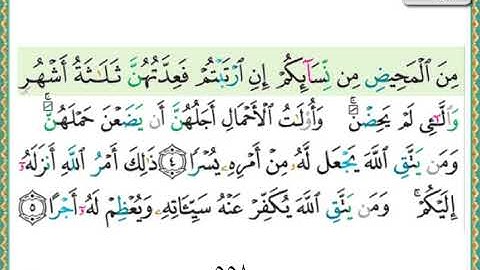 مِنَ ٱلْمَحِيضِ مِن نِّسَآئِكُمْ إِنِ ٱرْتَبْتُمْ فَعِدَّتُهُنَّ ثَلَٰثَةُ أَشْهُرٍ
وَٱلَّٰٓـِٔى لَمْ يَحِضْنَ ۚ وَأُو۟لَٰتُ ٱلْأَحْمَالِ أَجَلُهُنَّ أَن يَضَعْنَ حَمْلَهُنَّ ۚ
وَمَن يَتَّقِ ٱللَّهَ يَجْعَل لَّهُۥ مِنْ أَمْرِهِۦ يُسْرًا ٤ ذَٰلِكَ أَمْرُ ٱللَّهِ أَنزَلَهُۥٓ
إِلَيْكُمْ ۚ وَمَن يَتَّقِ ٱللَّهَ يُكَفِّرْ عَنْهُ سَيِّـَٔاتِهِۦ وَيُعْظِمْ لَهُۥٓ أَجْرًا ٥
٥٥٨